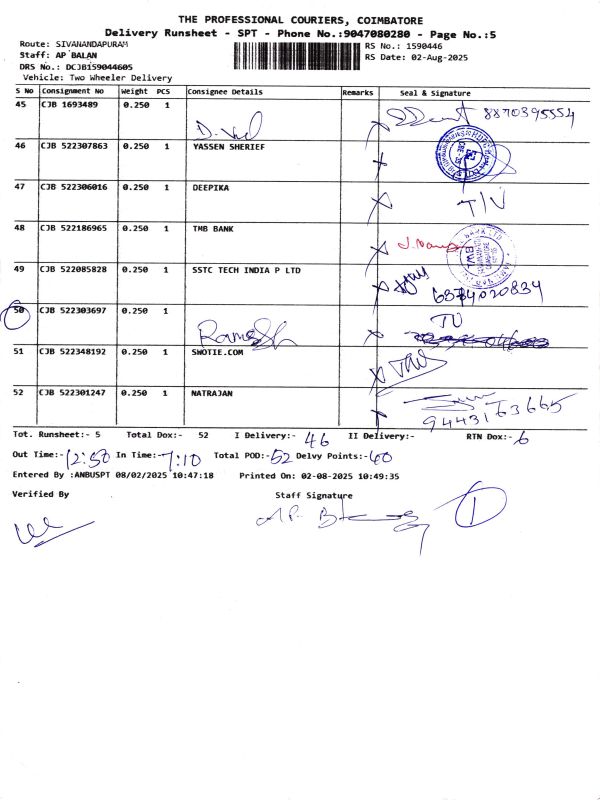 THE PROFESSIONAL COURIERS, COIMBATORE
Delivery Runsheet - SPT - Phone No.:9047080280 - Page No.:5
Route: SIVANANDAPURAM
RS No.: 1590446
Staff: AP BALAN
RS Date: 02-Aug-2025
DRS No.: DCJB159044605
Vehicle: Two Wheeler Delivery
S No Consignment No Weight PCS Consignee Details Remarks Seal & Signature
45 CJB 1693489 0.250 1 8870395554
46 CJB 522307863 0.250 1 YASSEN SHERIEF
47 CJB 522306016 0.250 1 DEEPIKA
48 CJB 522186965 0.250 1 TMB BANK
TMB
49 CJB 522085828 0.250 1 SSTC TECH INDIA P LTD
6374020834
50 CJB 522303697 0.250 1
Ramesh
51 CJB 522348192 0.250 1 SWOTIE.COM
52 CJB 522301247 0.250 1 NATRAJAN
9443163665
Tot. Runsheet:- 5 Total Dox:- 52 I Delivery:- 46 II Delivery:- RTN Dox:- 6
Out Time:- 12:50 In Time:- 7:10 Total POD:- 52 Delvy Points:- 40
Entered By :ANBUSPT 08/02/2025 10:47:18 Printed On: 02-08-2025 10:49:35
Verified By Staff Signature
1